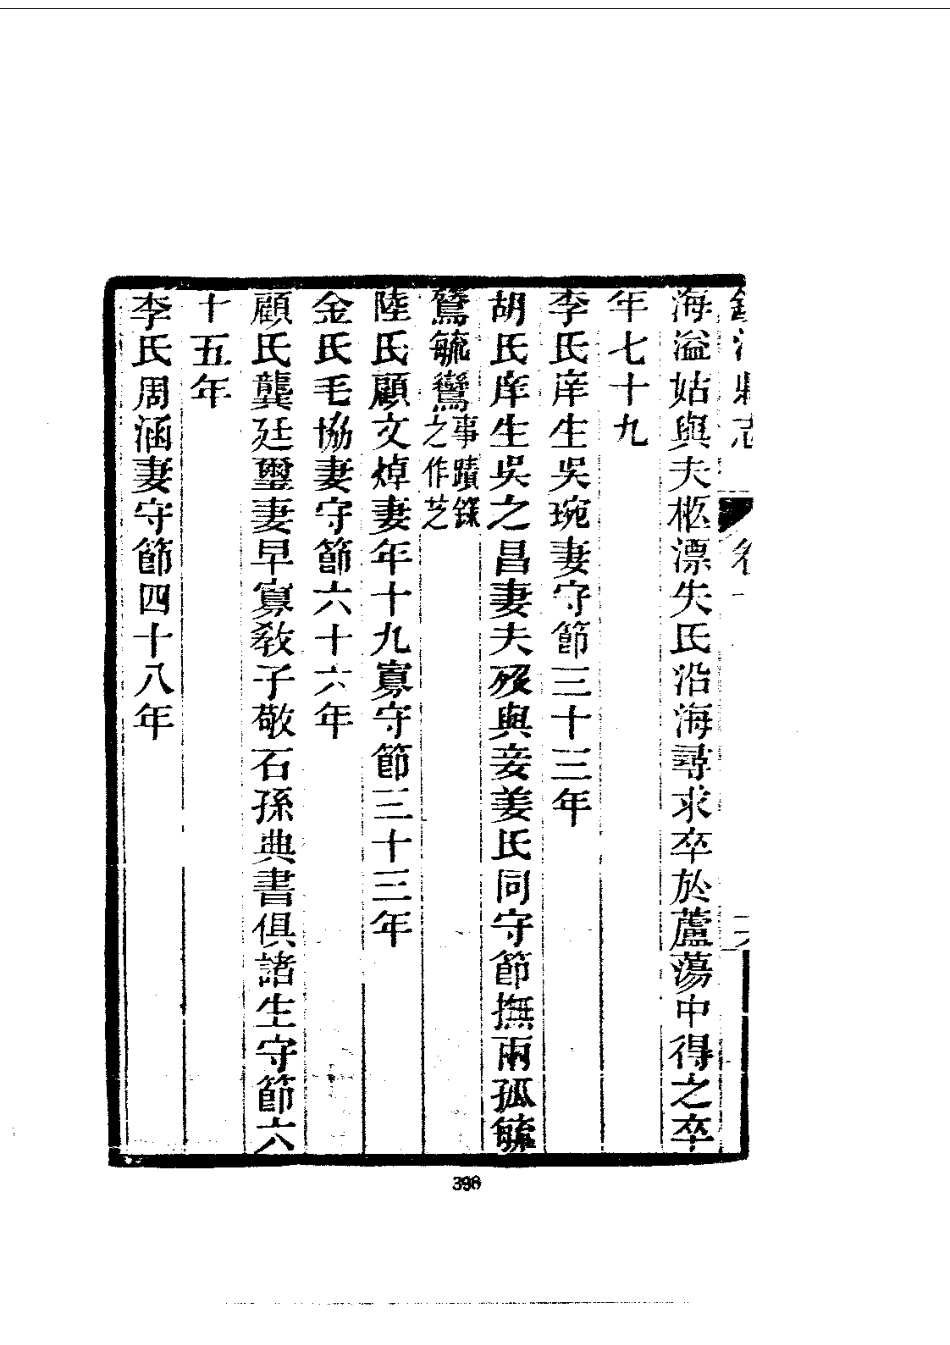 海溢姑與夫柩漂失氏沿海尋求卒於蘆蕩中得之卒
年七十九
李氏庠生吳琬妻守節三十三年
胡氏庠生吳之昌妻夫歿與妾姜氏同守節撫兩孤毓
鷟毓鸞事蹟錄
之作芝
陸氏顧文焯妻年十九寡守節三十三年
金氏毛協妻守節六十六年
顧氏龔廷璽妻早寡敎子敬石孫典書俱諸生守節六
十五年
李氏周涵妻守節四十八年
398